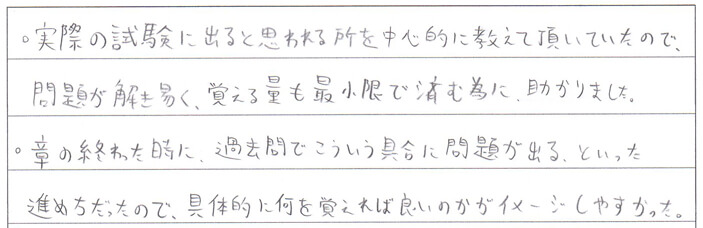 ○実際の試験に出ると思われる所を中心的に教えて頂いていたので、
問題が解き易く、覚える量も最小限で済む為に、助かりました。
○章の終わった時に、過去問でこういう具合に問題が出る、といった
進め方だったので、具体的に何を覚えれば良いのかがイメージしやすかった。